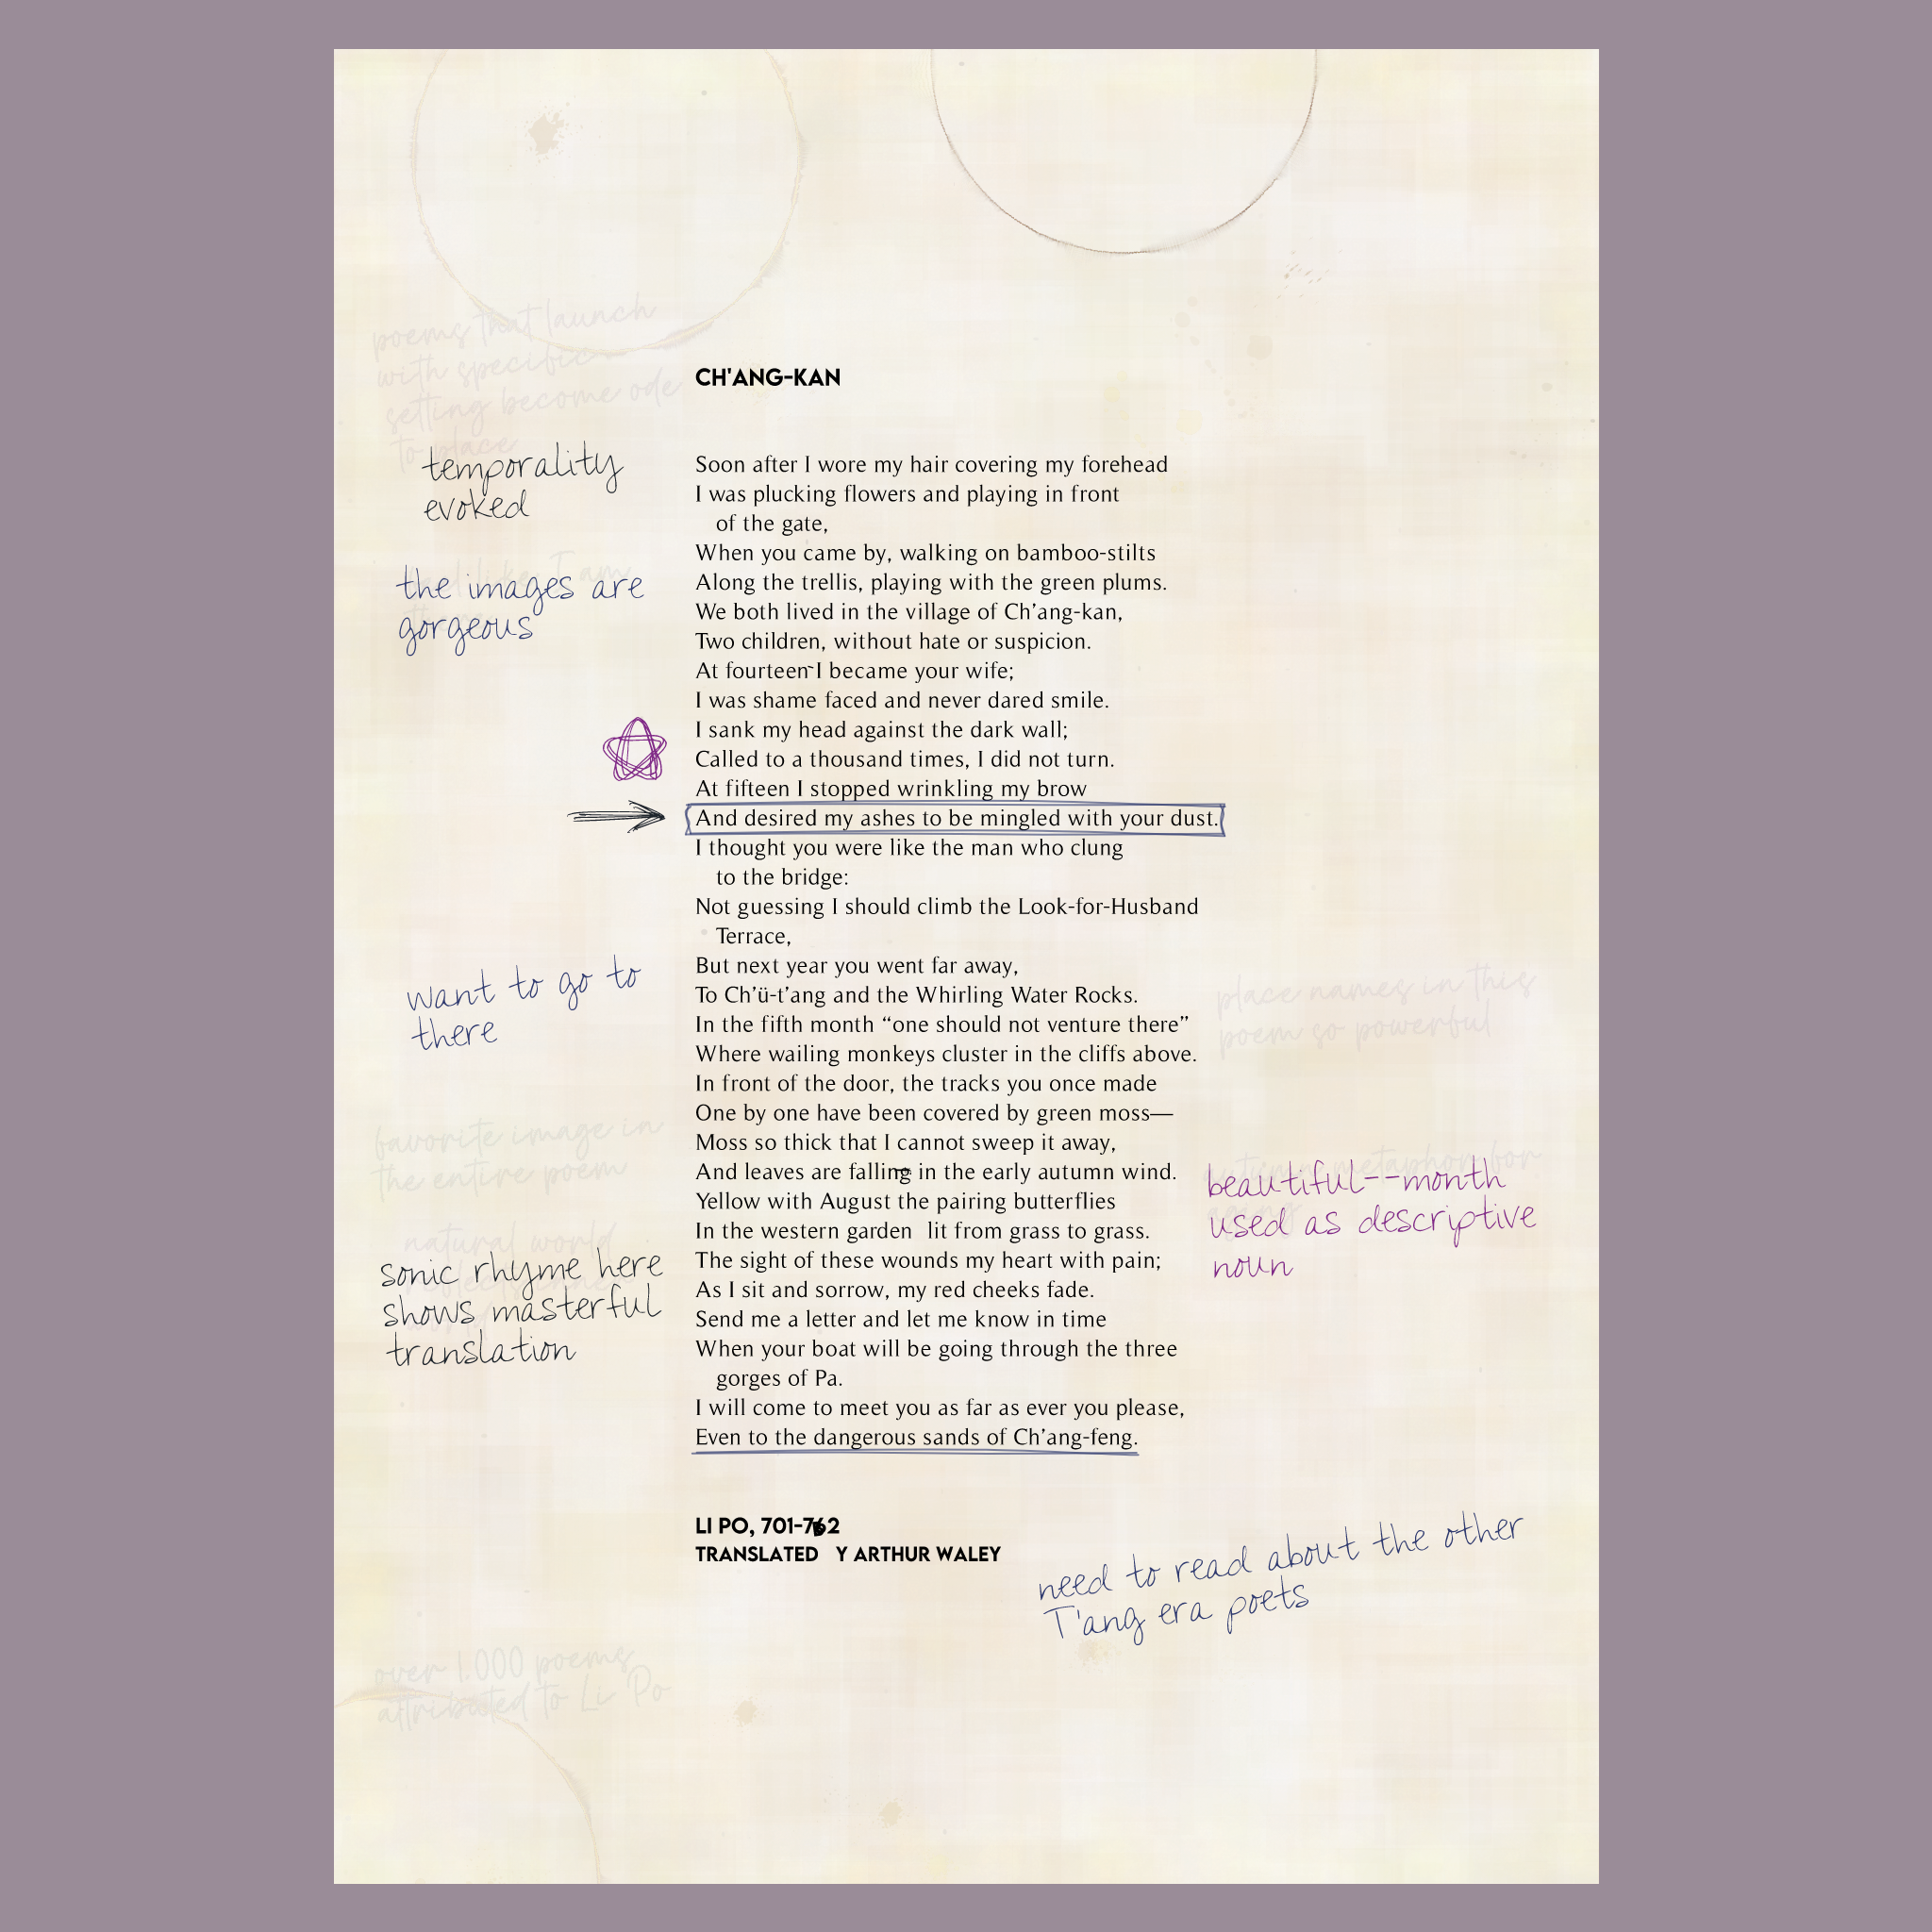 poems that launch
with specific
setting become ode
to place
CH'ANG-KAN
temporality
evoked
the images are
gorgeous
feel like I am
Soon after I wore my hair covering my forehead
I was plucking flowers and playing in front
of the gate,
When you came by, walking on bamboo-stilts
Along the trellis, playing with the green plums.
We both lived in the village of Ch’ang-kan,
Two children, without hate or suspicion.
At fourteen I became your wife;
I was shame faced and never dared smile.
I sank my head against the dark wall;
Called to a thousand times, I did not turn.
At fifteen I stopped wrinkling my brow
And desired my ashes to be mingled with your dust.
I thought you were like the man who clung
to the bridge:
Not guessing I should climb the Look-for-Husband
Terrace,
But next year you went far away,
To Ch’ü-t’ang and the Whirling Water Rocks.
In the fifth month “one should not venture there”
Where wailing monkeys cluster in the cliffs above.
In front of the door, the tracks you once made
One by one have been covered by green moss—
Moss so thick that I cannot sweep it away,
And leaves are falling in the early autumn wind.
Yellow with August the pairing butterflies
In the western garden lit from grass to grass.
The sight of these wounds my heart with pain;
As I sit and sorrow, my red cheeks fade.
Send me a letter and let me know in time
When your boat will be going through the three
gorges of Pa.
I will come to meet you as far as ever you please,
Even to the dangerous sands of Ch’ang-feng.
want to go to
there
place names in this
poem so powerful
favorite image in
the entire poem
autumn metaphor for
aging
beautiful--month
used as descriptive
noun
natural world
reflects
world
sonic rhyme here
shows masterful
translation
LI PO, 701-762
TRANSLATED Y ARTHUR WALEY
need to read about the other
T'ang era poets
over 1.000 poems
attributed to Li Po